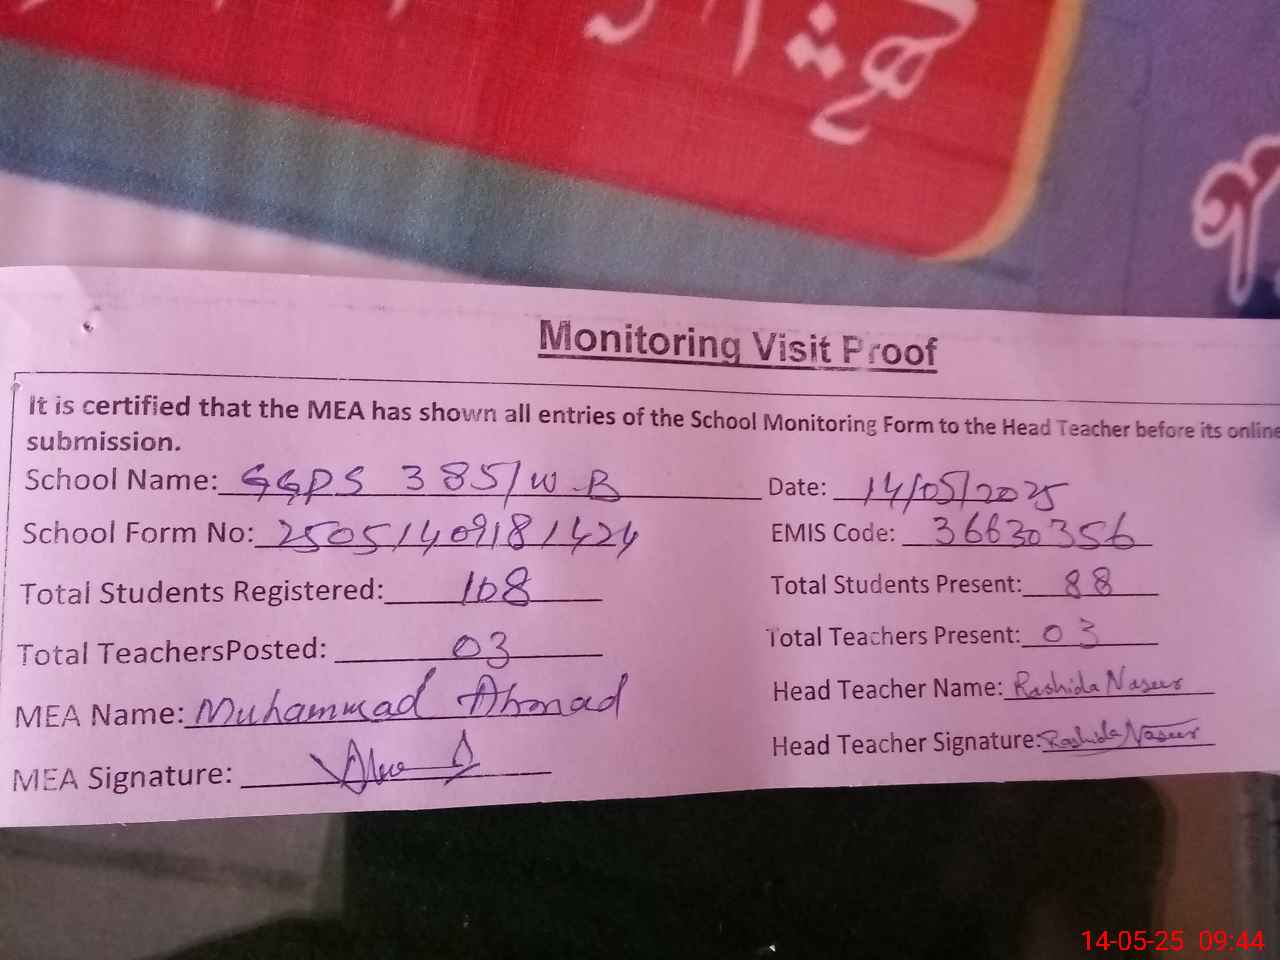 Monitoring Visit Proof
It is certified that the MEA has shown all entries of the School Monitoring Form to the Head Teacher before its online
submission.
School Name: GGPS 385/W-B Date: 14/05/2025
School Form No: 25051409181424 EMIS Code: 36630356
Total Students Registered: 108 Total Students Present: 88
Total TeachersPosted: 03 Total Teachers Present: 03
MEA Name: Muhammad Ahmad Head Teacher Name: Rashida Naseer
MEA Signature: Head Teacher Signature: Rashida Naseer
14-05-25 09:44